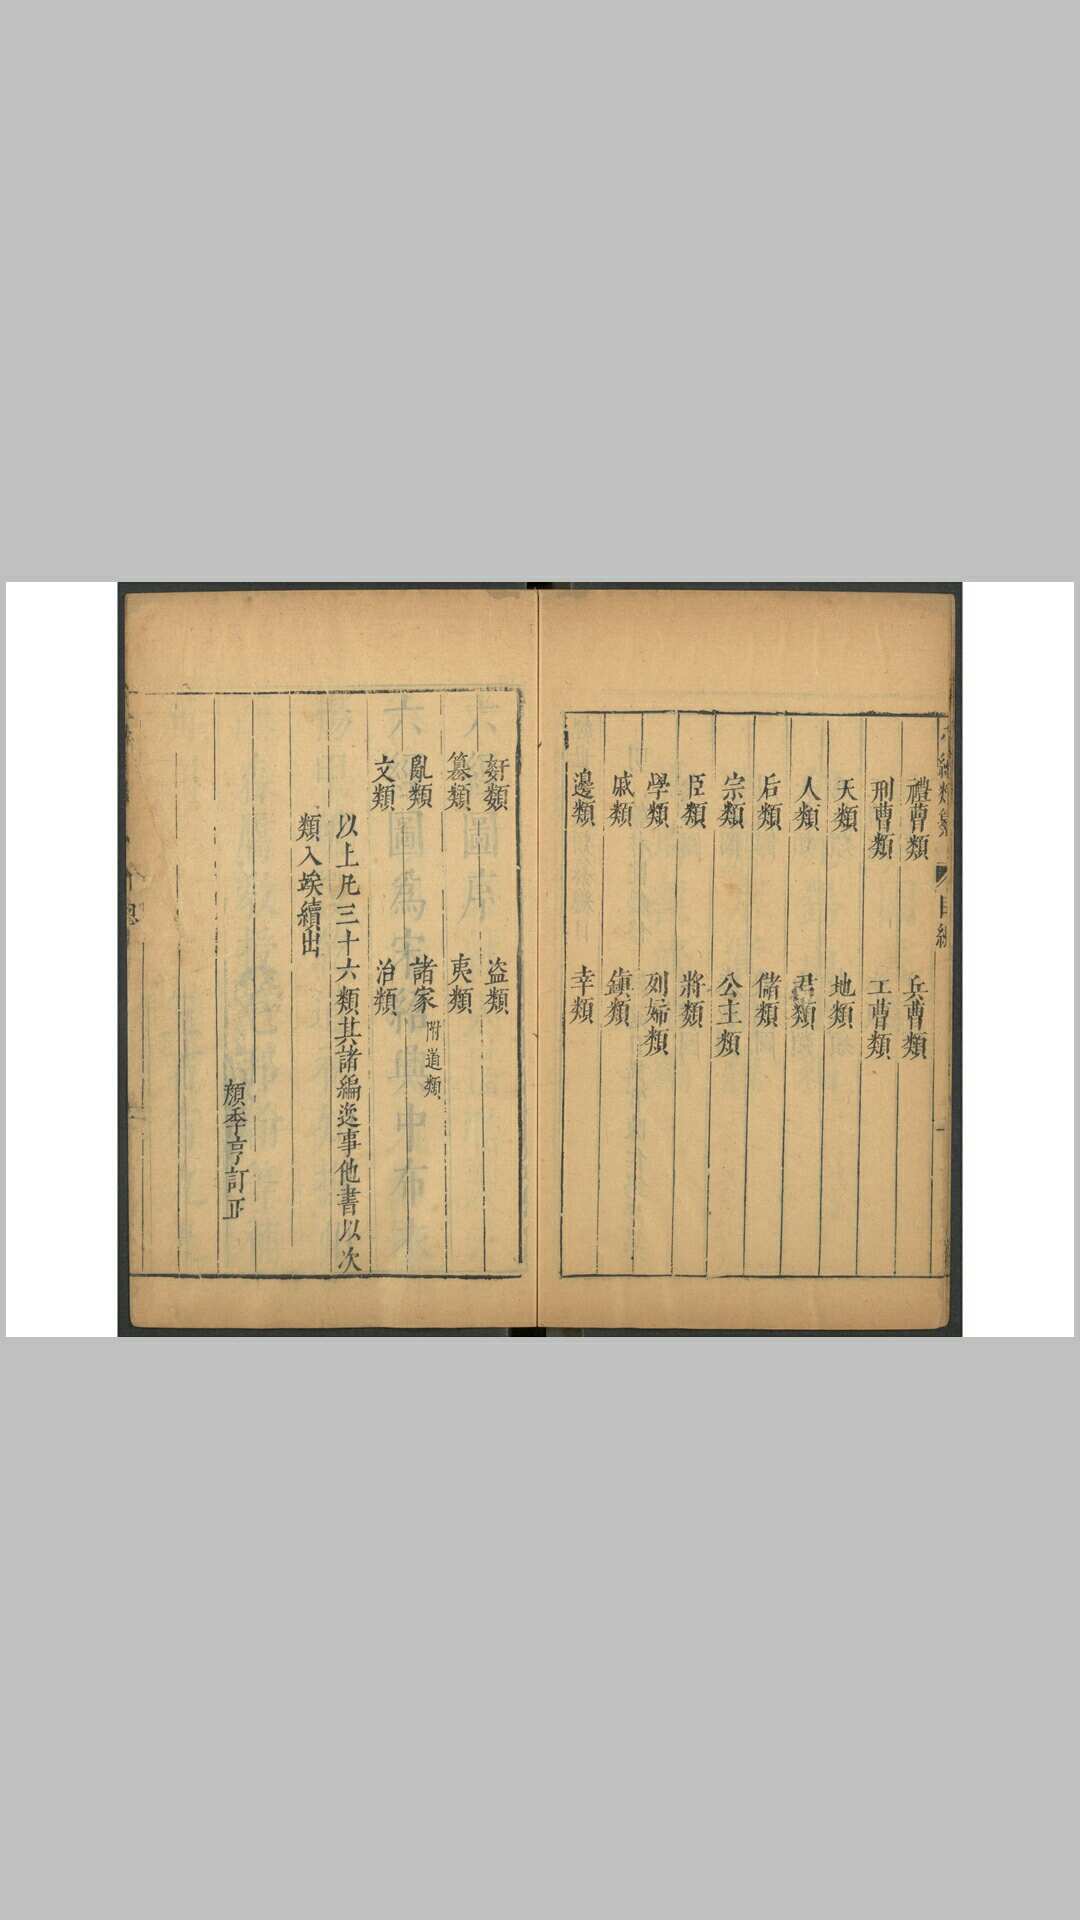 禮曹類 兵曹類
刑曹類 工曹類
天類 地類
人類 君類
后類 儲類
宗類 公主類
臣類 將類
學類 列婦類
戚類 鎮類
邊類 幸類
姧類 盜類
篡類 夷類
亂類 諸家附道類
文類 治類
以上凡三十六類其諸編逸事他書以次
類入竢續出
顏季亨訂正